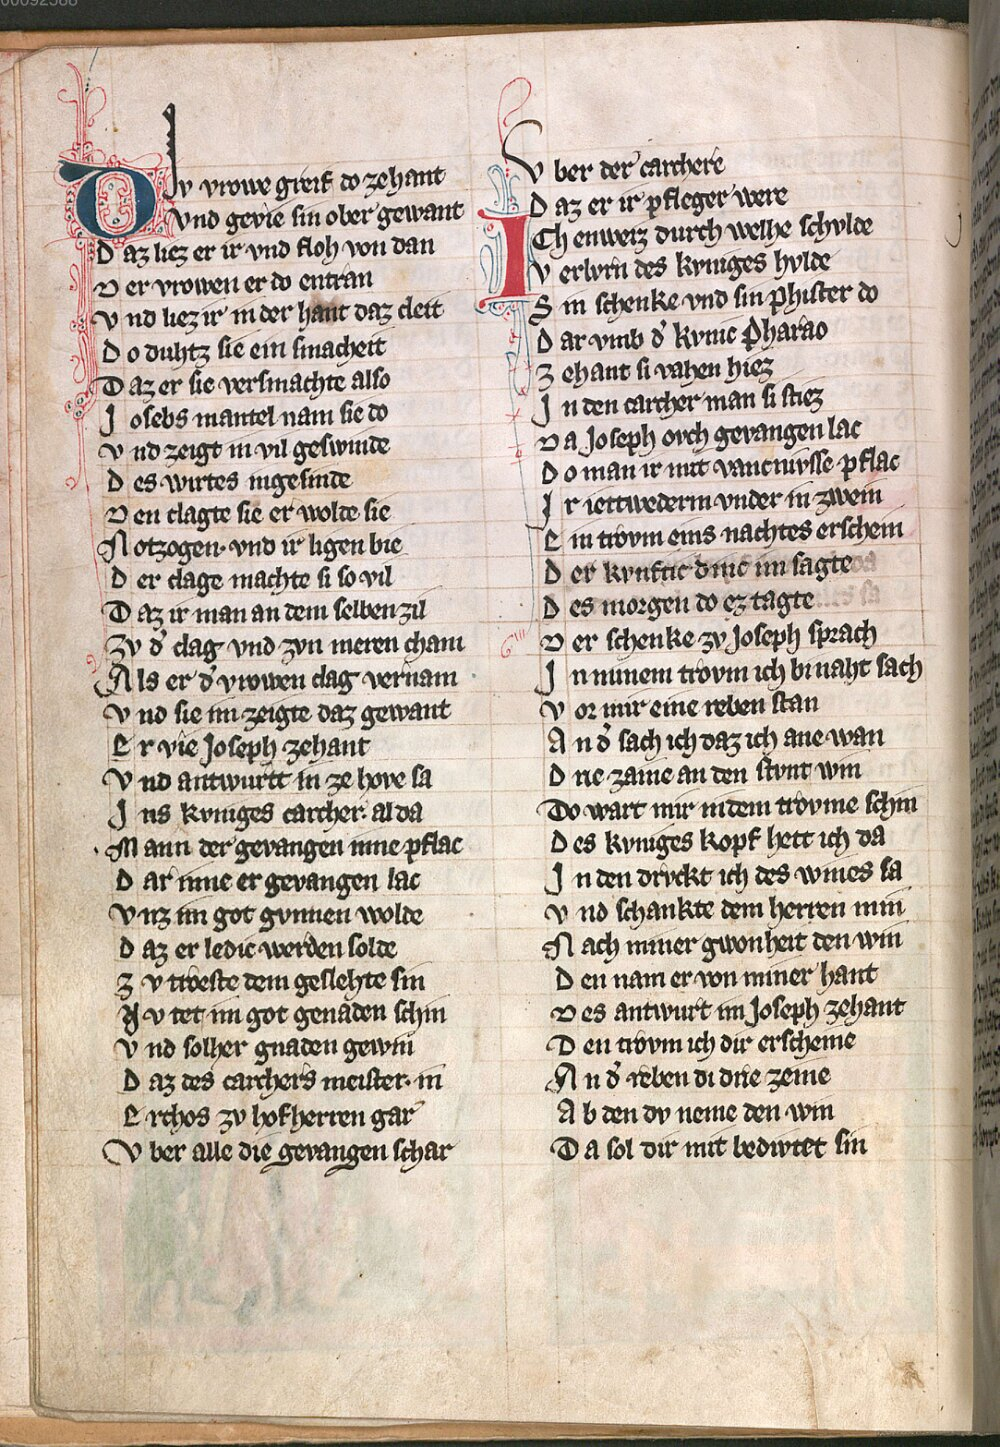 00092588
Div vrowe greif do zehant
Vnd gevie sin ober gewant
Daz liez er ir vnd floh von dan
Der vrowen er do entran
Vnd liez ir in der hant daz cleit
Do duhtz sie ein smacheit
Daz er sie versmachte also
Josebs mantel nam sie do
Vnd zeigt in vil geswinde
Des wirtes ingesinde
Den clagte sie er wolde sie
Notzogen. vnd ir ligen bie
Der clage machte si so vil
Daz ir man an dem selben zil
Zv dˀ clag vnd zvn meren cham
Als er dˀ vrowen clag vernam
Vnd sie im zeigte daz gewant
Er vie Joseph zehant
Vnd antwurtt in ze hove sa
Jns kvniges carcher. al da
Mann der gevangen inne pflac
Dar inne er gevangen lac
Vnz im got gvnnen wolde
Daz er ledic werden solde
Zv troeste dem geslehte sin
Nv tet im got genaden schin
Vnd solher gnaden gewin
Daz des carchers meister. in
Erchos zv hofherren gar
Vber alle die gevangen schar
Vber der carchere
Daz er ir pfleger were
Ich enweiz durch welhe schvlde
Verlvrn des kvniges hvlde
Sin schenke vnd sin phister do
Dar vmb dˀ kvnic Pharao
Zehant si vahen hiez
Jn den carcher man si stiez
Da Joseph ovch gevangen lac
Do man ir mit vancnvsse pflac
Jr iettwederm vnder in zwein
Ein trovm eins nachtes erschein
Der kvnftic dinc im sagte
Des morgen do ez tagte
Der schenke zv Joseph sprach
Jn minem trovm ich bi naht sach
Vor mir eine reben stan
An dˀ sach ich daz ich ane wan
Drie zaine an den stvnt win
Do wart mir in dem trovme schin
Des kvniges kopf hett ich da
Jn den drvckt ich des wines sa
Vnd schankte dem herren min
Nach miner gwonheit den win
Den nam er von miner hant
Des antwurt im Joseph zehant
Den trovm ich dir erscheine
An dˀ reben di drie zeine
Ab den dv neme den win
Da sol dir mit bedivtet sin